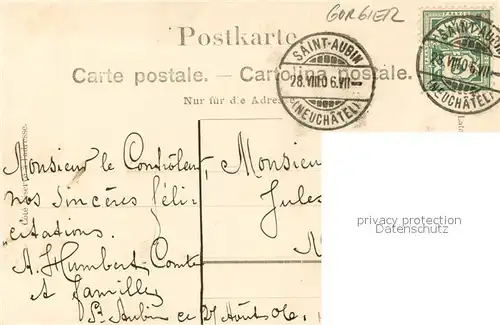 GORGIER
Postkarte
Carte postale. — Cartolina postale.
Nur für die Adresse
SAINT-AUBIN
28.VIII.06.VII
(NEUCHÂTEL)
SAINT-AUBIN
28.VIII.06.VII
(NEUCHÂTEL)
Côté réservé à l'adresse.
Monsieur le Contrôleur,
nos sincères féli-
citations.
A. Humbert-Comte
et famille
St Aubin ce 27 Août 06.
Monsieur
Jules
privacy protection
Datenschutz